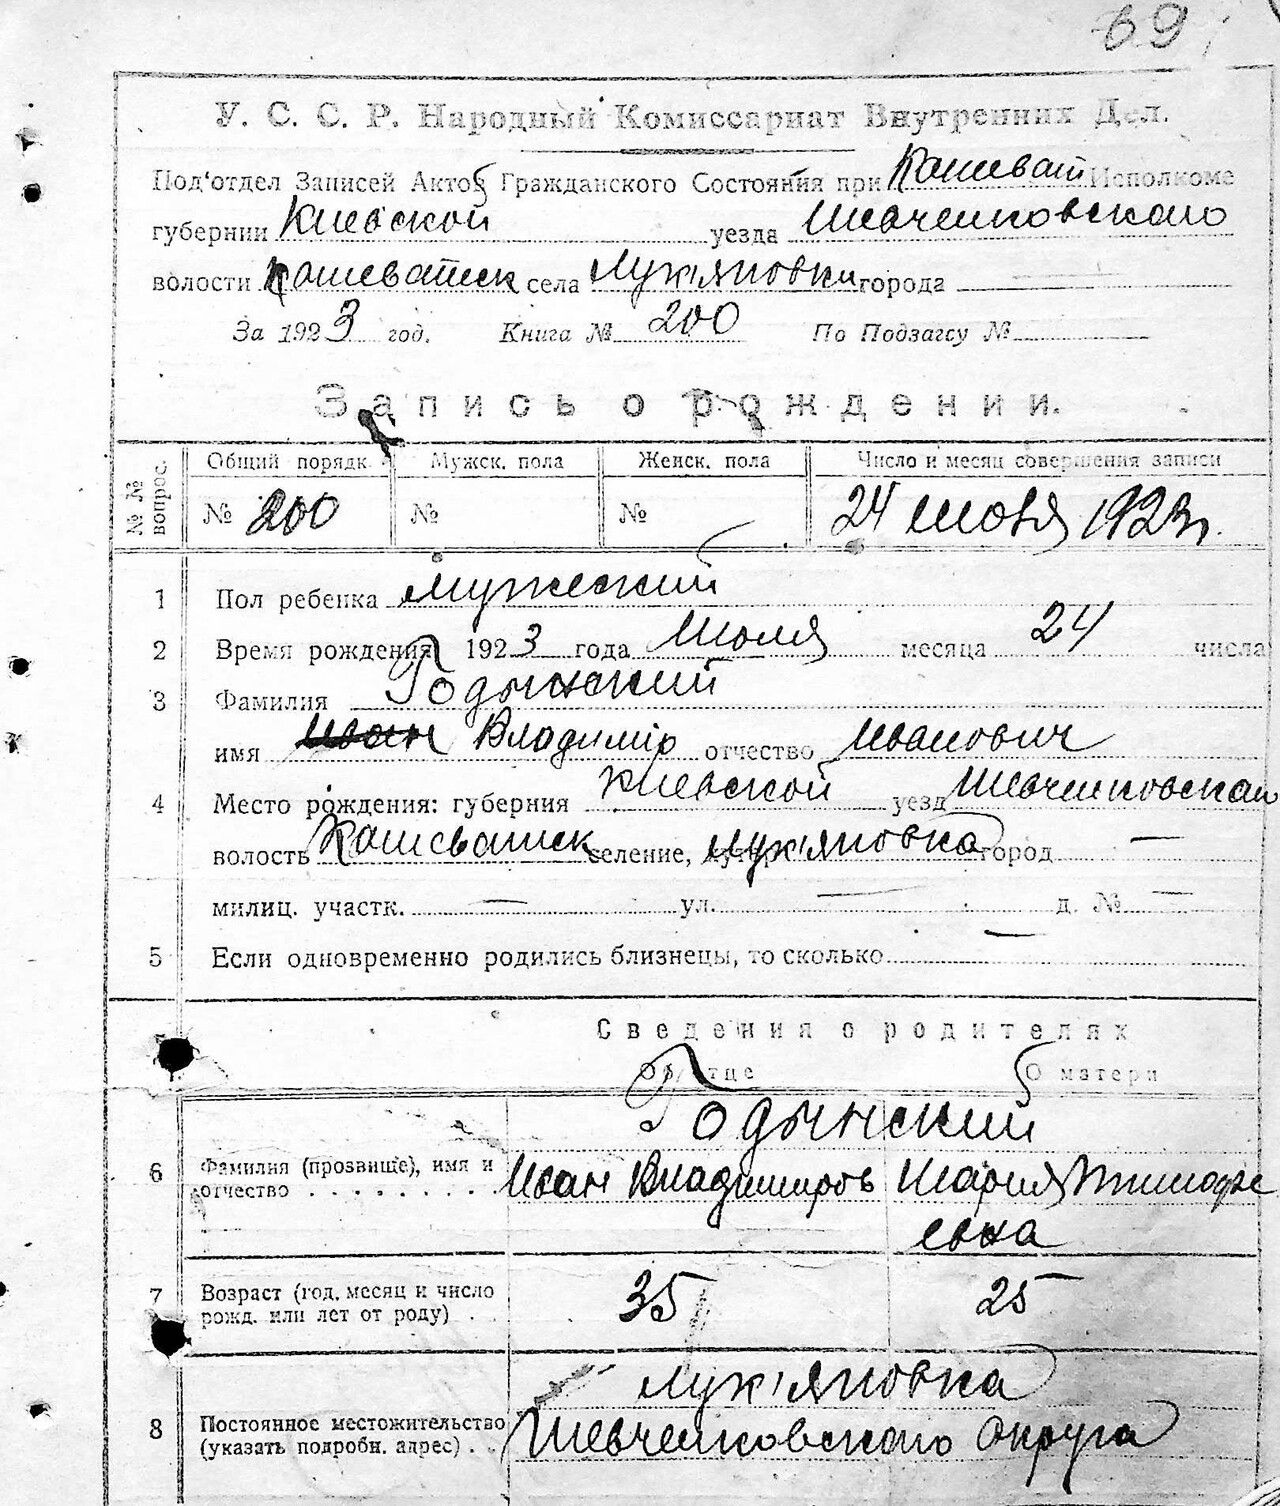 69
У. С. С. Р. Народный Комиссариат Внутренних Дел.
Под'отдел Записей Актов Гражданского Состояния при Кашеват Исполкоме
губернии Киевской уезда Шевченковского
волости Кашеватск села Лук'яновки города
За 1923 год. Книга № 200 По Подзагсу №
Запись о рождении.
№№ вопрос. Общий порядк. Мужск. пола Женск. пола Число и месяц совершения записи
№ 200 № № 24 июля 1923 г.
1 Пол ребенка мужеский
2 Время рождения 1923 года Июля месяца 24 числа
3 Фамилия Годынский
имя Иван Владимір отчество Иванович
4 Место рождения: губерния Киевской уезд Шевченковской
волость Кашеватск селение, Лук'яновка город —
милиц. участк. — ул. — д. № —
5 Если одновременно родились близнецы, то сколько —
Сведения о родителях
Об отце О матери
Годынский
6 Фамилия (прозвище), имя и Иван Владимиров Мария
отчество . . . . . . . . евна
7 Возраст (год, месяц и число 35 25
рожд. или лет от роду) . .
Лук'яновка
8 Постоянное местожительство Шевченковского округа
(указать подробн. адрес) . .